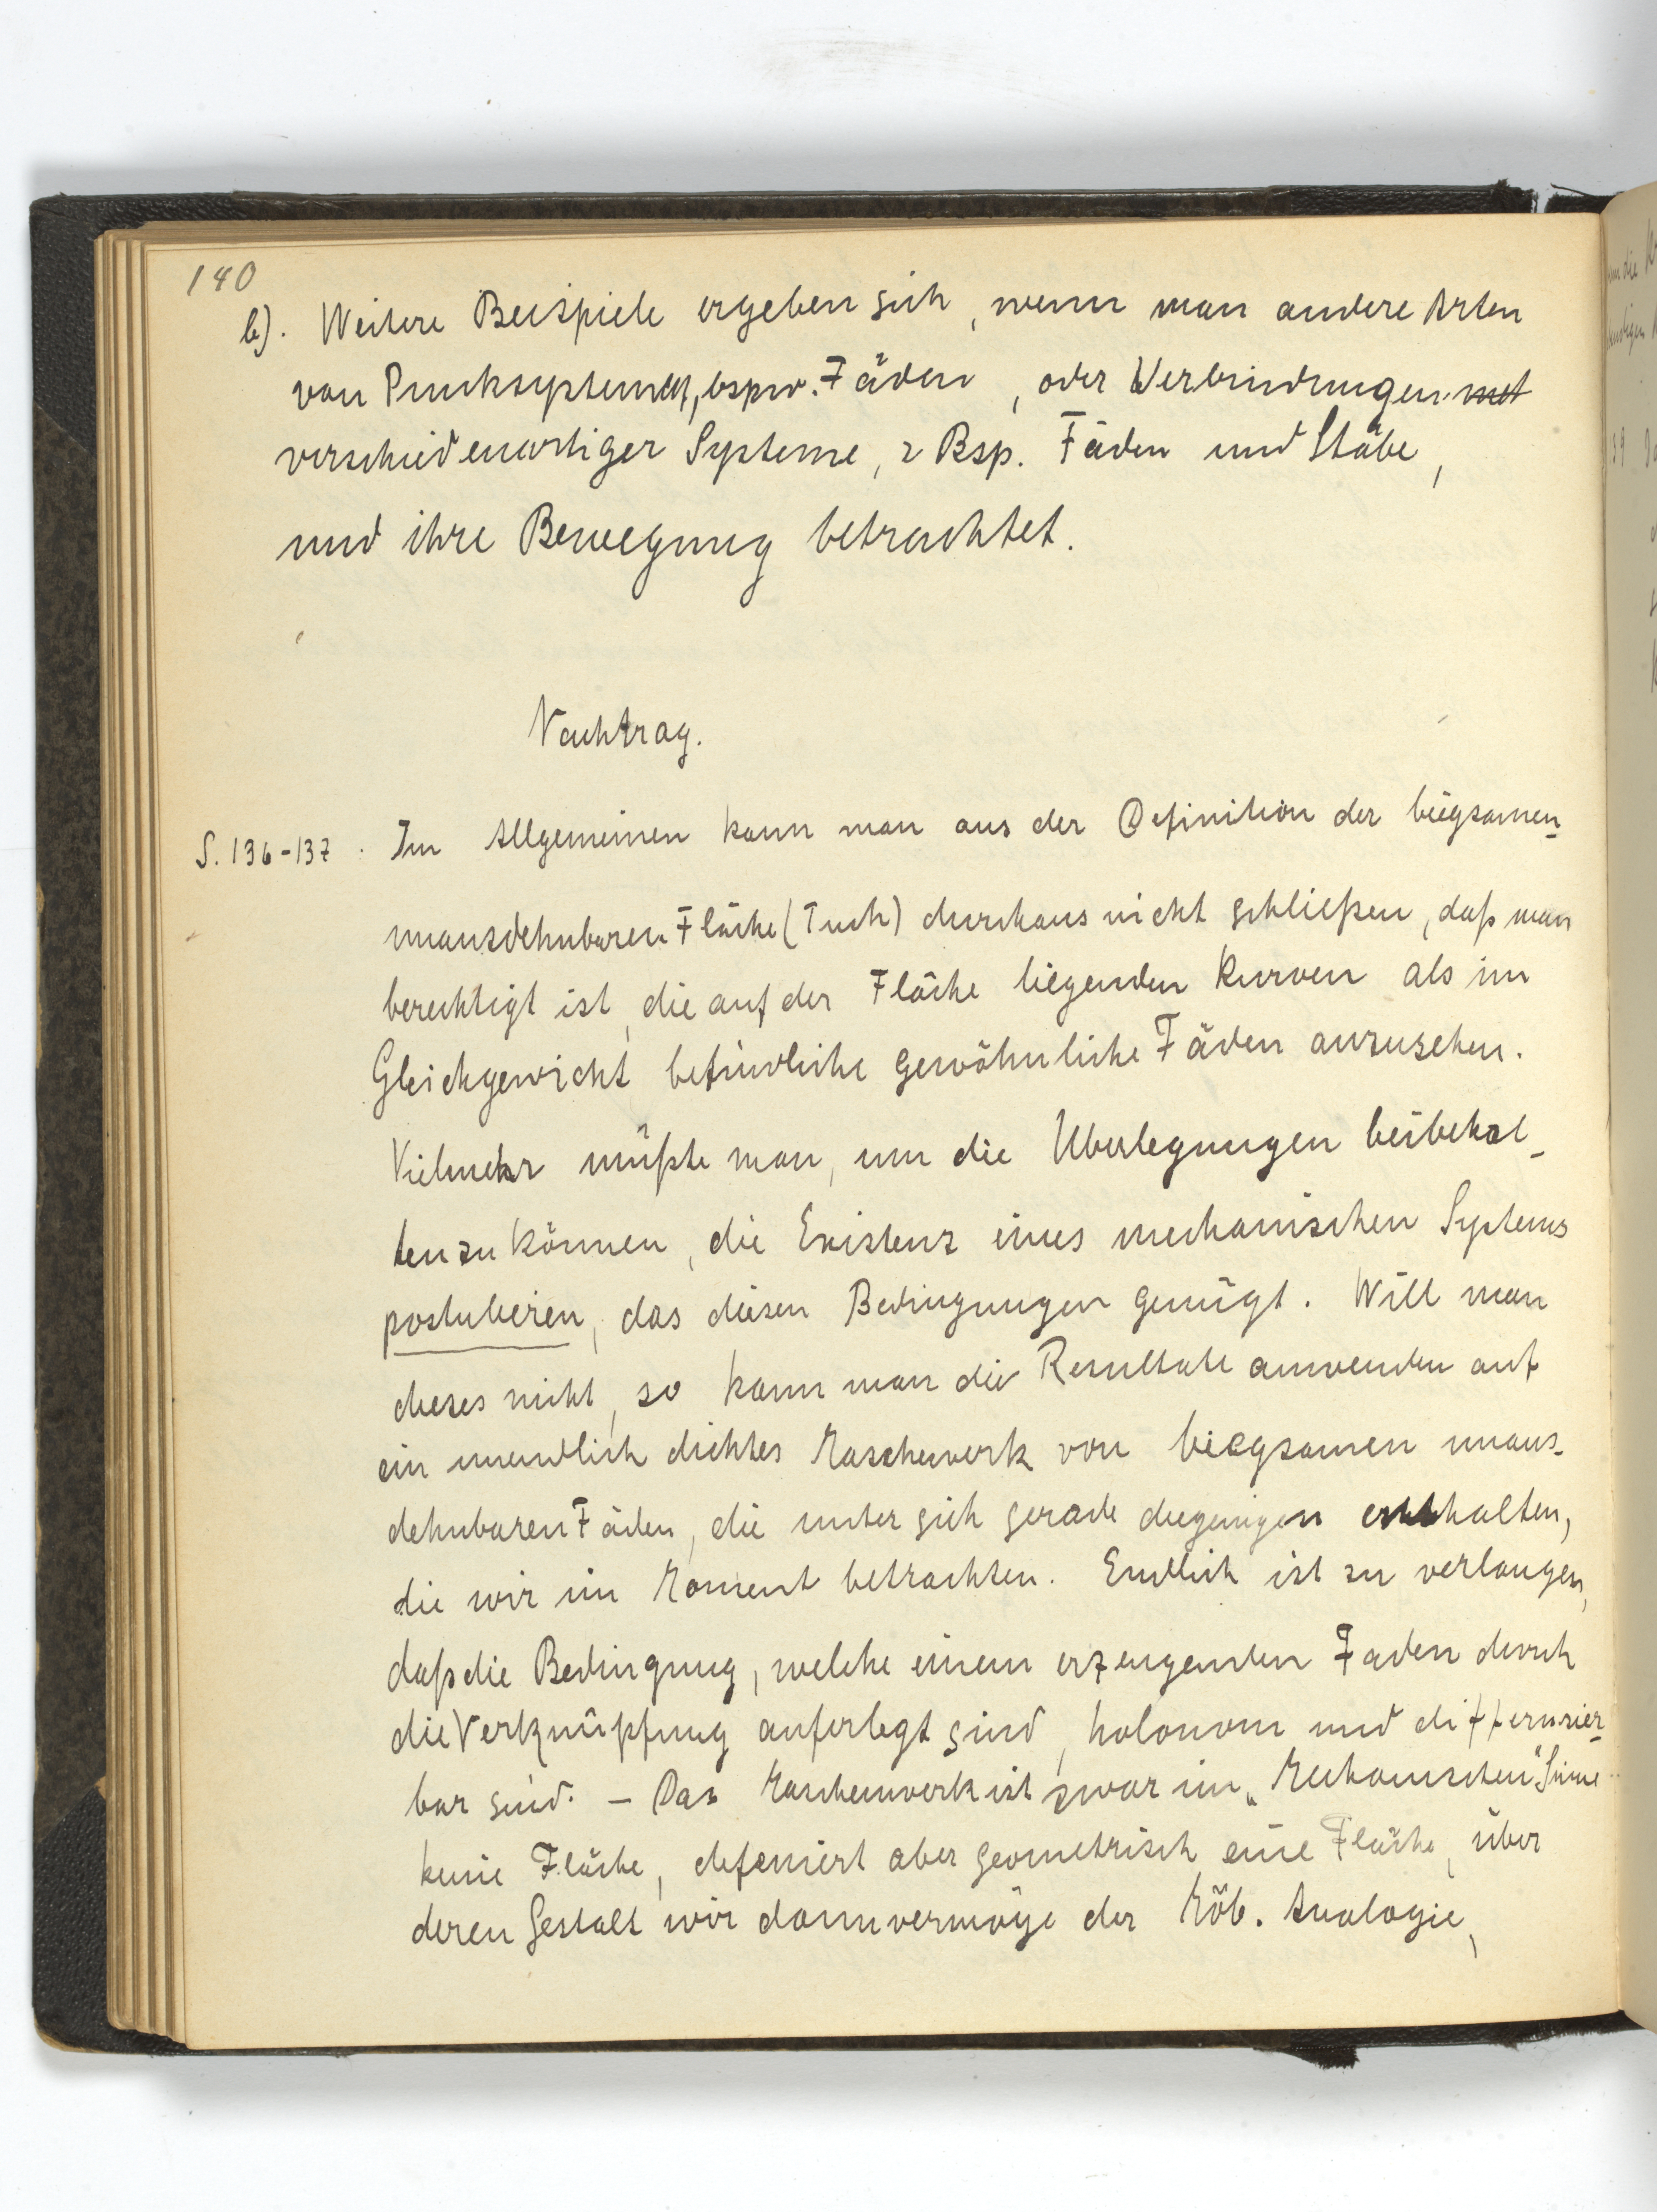 140
b). Weitere Beispiele ergeben sich, wenn man andere Arten
von Punktsystemen, bspw. Fäden, oder Verbindungen
verschiedenartiger Systeme, z Bsp. Fäden und Stäbe,
und ihre Bewegung betrachtet.
Nachtrag.
S. 136-137. Im Allgemeinen kann man aus der Definition der biegsamen-
unausdehnbaren Fläche (Tuch) durchaus nicht schließen, daß man
berechtigt ist, die auf der Fläche liegenden Kurven als im
Gleichgewicht befindliche gewöhnliche Fäden anzusehen.
Vielmehr müßte man, um die Überlegungen beibehal-
ten zu können, die Existenz eines mechanischen Systems
postulieren, das diesen Bedingungen genügt. Will man
dieses nicht, so kann man die Resultate anwenden auf
ein unendlich dichtes Maschenwerk von biegsamen unaus-
dehnbaren Fäden, die unter sich gerade diejenigen enthalten,
die wir im Moment betrachten. Endlich ist zu verlangen,
daß die Bedingung, welche einem erzeugenden Faden durch
die Verknüpfung auferlegt sind, holonom und differenzier-
bar sind. - Das Maschenwerk ist zwar im "Mechanischen" Sinne
keine Fläche, definiert aber geometrisch eine Fläche, über
deren Gestalt wir dann vermöge der Möb. Analogie,